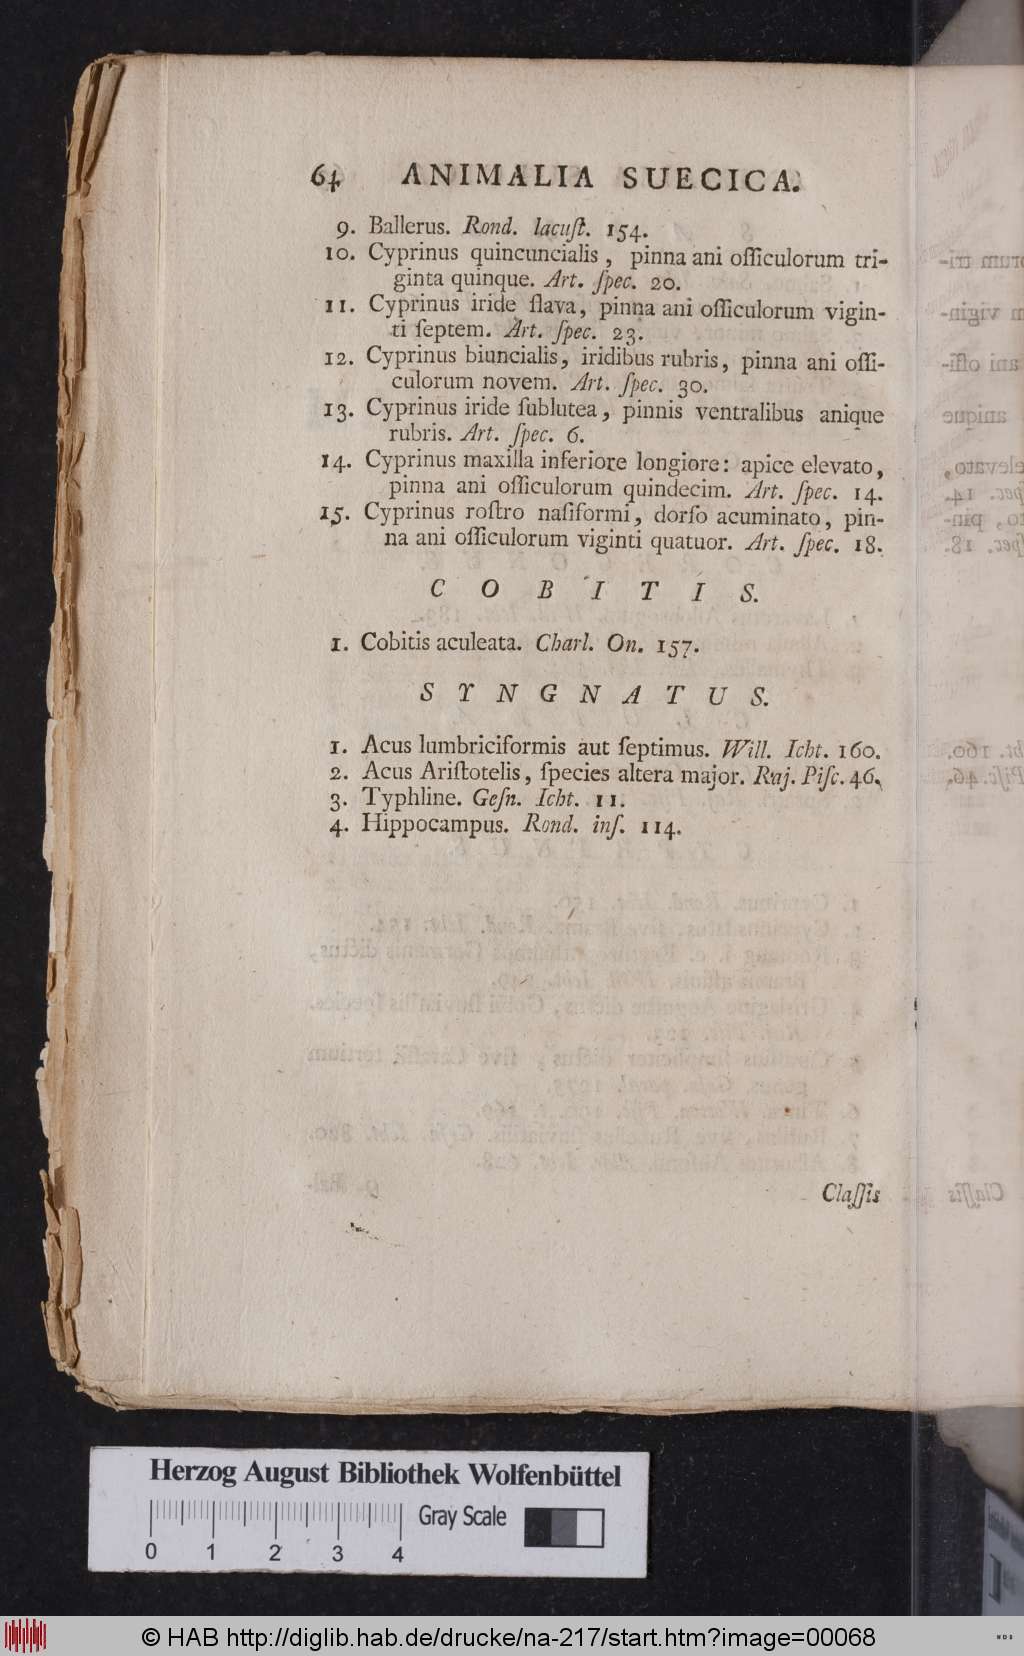 64 ANIMALIA SUECICA.
9. Ballerus. Rond. lacuſt. 154.
10. Cyprinus quincuncialis, pinna ani oſſiculorum tri-
ginta quinque. Art. ſpec. 20.
11. Cyprinus iride flava, pinna ani oſſiculorum vigin-
ti ſeptem. Art. ſpec. 23.
12. Cyprinus biuncialis, iridibus rubris, pinna ani oſſi-
culorum novem. Art. ſpec. 30.
13. Cyprinus iride ſublutea, pinnis ventralibus anique
rubris. Art. ſpec. 6.
14. Cyprinus maxilla inferiore longiore: apice elevato,
pinna ani oſſiculorum quindecim. Art. ſpec. 14.
15. Cyprinus roſtro naſiformi, dorſo acuminato, pin-
na ani oſſiculorum viginti quatuor. Art. ſpec. 18.
COBITIS.
1. Cobitis aculeata. Charl. On. 157.
SYNGNATUS.
1. Acus lumbriciformis aut ſeptimus. Will. Icht. 160.
2. Acus Ariſtotelis, ſpecies altera major. Raj. Piſc. 46.
3. Typhline. Geſn. Icht. 11.
4. Hippocampus. Rond. inſ. 114.
Claſſis
Herzog August Bibliothek Wolfenbüttel
Gray Scale
0 1 2 3 4
© HAB http://diglib.hab.de/drucke/na-217/start.htm?image=00068